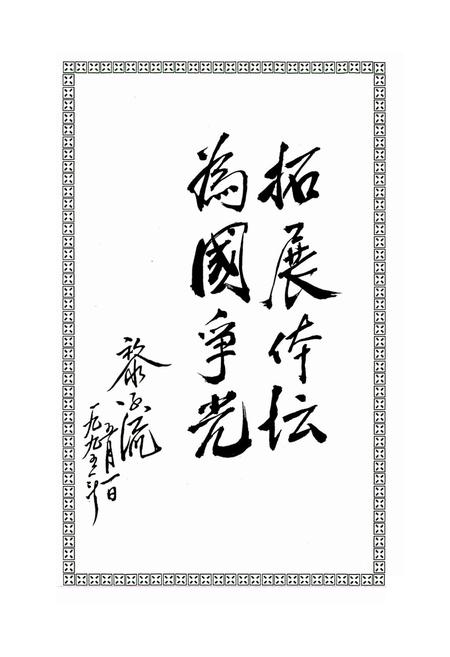 拓展体坛
為國爭光
黎子流
一九九五年
五月一日